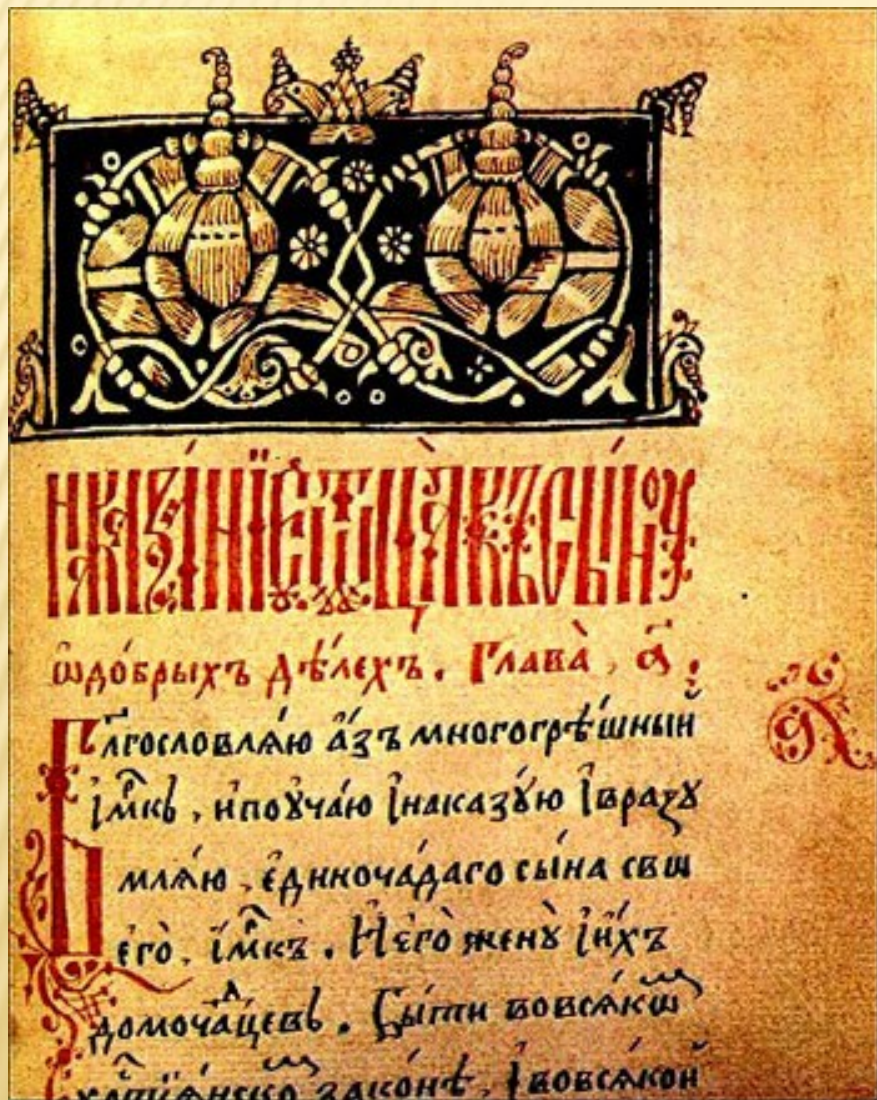 НАКАЗА́НЇЕ Ѿ́ЦА̀КЪСЫ́НОУ
ѡдо́брыхъ дѣ́лехъ. Глава̀, а҃:
а҃
Бл҃гословлѧ́ю а҆́зъ многогрѣ́шный
і҆м҃къ, ипоꙋча́ю інаказꙋ́ю івразꙋ
млѧ́ю, є҆диноча́даго сы́на свѡ
є҆го̀. і҆м҃къ. Иєго̀ женꙋ̀ іи҆́хъ
домоча́ⷣцевъ. Бы́ти вовсѧ́кѡⷨ
хрⷭ҇тиѧ́нскоⷨ зако́нѣ, Івовсѧ́кой